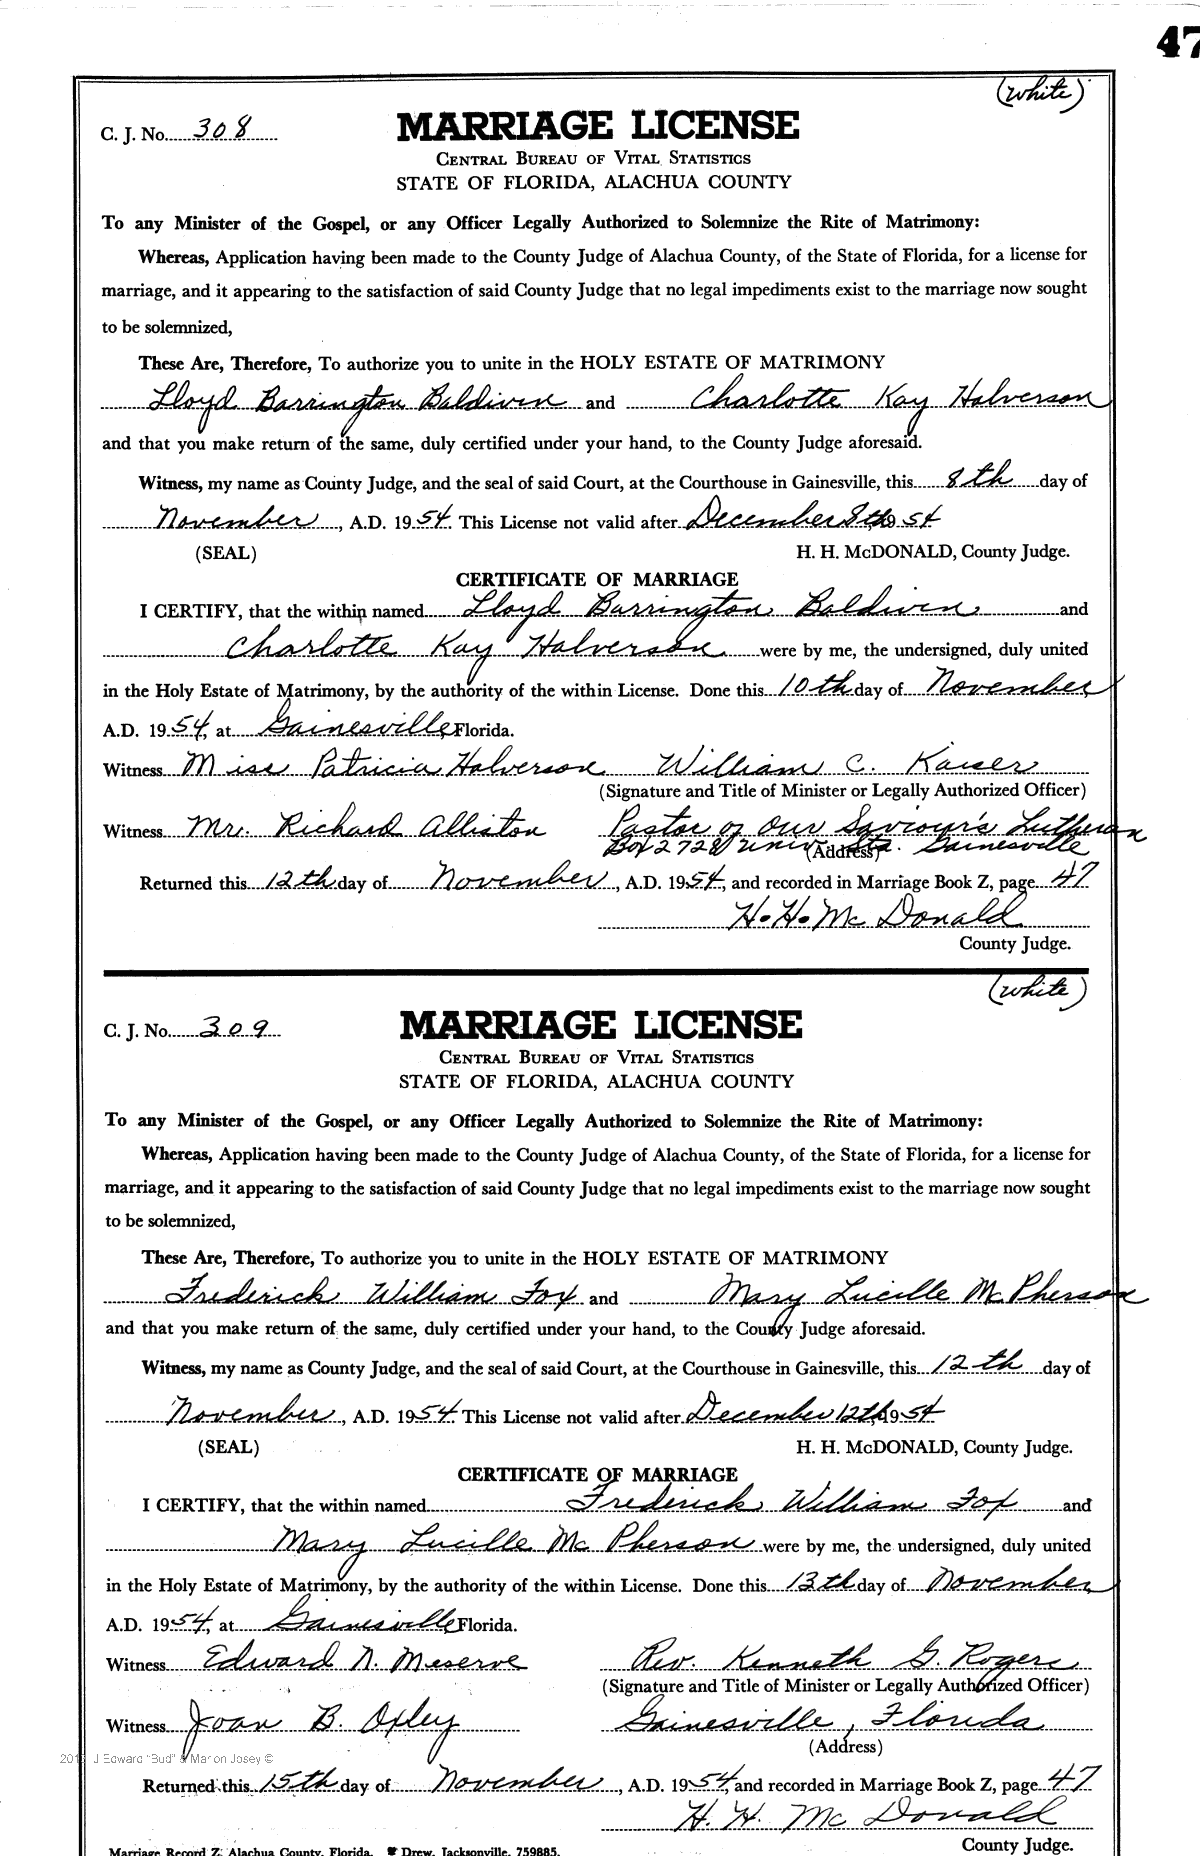 47
(white)
C. J. No. 308 MARRIAGE LICENSE
CENTRAL BUREAU OF VITAL STATISTICS
STATE OF FLORIDA, ALACHUA COUNTY
To any Minister of the Gospel, or any Officer Legally Authorized to Solemnize the Rite of Matrimony:
Whereas, Application having been made to the County Judge of Alachua County, of the State of Florida, for a license for
marriage, and it appearing to the satisfaction of said County Judge that no legal impediments exist to the marriage now sought
to be solemnized,
These Are, Therefore, To authorize you to unite in the HOLY ESTATE OF MATRIMONY
Lloyd Barrington Baldwin and Charlotte Kay Halverson
and that you make return of the same, duly certified under your hand, to the County Judge aforesaid.
Witness, my name as County Judge, and the seal of said Court, at the Courthouse in Gainesville, this 8th day of
November, A.D. 1954. This License not valid after December 8th 1954
(SEAL) H. H. McDONALD, County Judge.
CERTIFICATE OF MARRIAGE
I CERTIFY, that the within named Lloyd Barrington Baldwin and
Charlotte Kay Halverson were by me, the undersigned, duly united
in the Holy Estate of Matrimony, by the authority of the within License. Done this 10th day of November,
A.D. 1954, at Gainesville, Florida.
Witness Miss Patricia Halverson William C. Kaiser
(Signature and Title of Minister or Legally Authorized Officer)
Witness Mr. Richard Alliston Pastor of Our Saviour's Lutheran
Box 2728 Univ. Sta. Gainesville
(Address)
Returned this 12th day of November, A.D. 1954, and recorded in Marriage Book Z, page 47
H. H. McDonald
County Judge.
(white)
C. J. No. 309 MARRIAGE LICENSE
CENTRAL BUREAU OF VITAL STATISTICS
STATE OF FLORIDA, ALACHUA COUNTY
To any Minister of the Gospel, or any Officer Legally Authorized to Solemnize the Rite of Matrimony:
Whereas, Application having been made to the County Judge of Alachua County, of the State of Florida, for a license for
marriage, and it appearing to the satisfaction of said County Judge that no legal impediments exist to the marriage now sought
to be solemnized,
These Are, Therefore, To authorize you to unite in the HOLY ESTATE OF MATRIMONY
Frederick William Fox and Mary Lucille McPherson
and that you make return of the same, duly certified under your hand, to the County Judge aforesaid.
Witness, my name as County Judge, and the seal of said Court, at the Courthouse in Gainesville, this 12th day of
November, A.D. 1954. This License not valid after December 12th, 1954
(SEAL) H. H. McDONALD, County Judge.
CERTIFICATE OF MARRIAGE
I CERTIFY, that the within named Frederick William Fox and
Mary Lucille McPherson were by me, the undersigned, duly united
in the Holy Estate of Matrimony, by the authority of the within License. Done this 13th day of November,
A.D. 1954, at Gainesville, Florida.
Witness Edward N. Meserve Rev. Kenneth G. Rogers
(Signature and Title of Minister or Legally Authorized Officer)
Witness Joan B. Oxley Gainesville, Florida
(Address)
J Edward "Bud" & Marion Josey ©
Returned this 15th day of November, A.D. 1954, and recorded in Marriage Book Z, page 47
H. H. McDonald
County Judge.
Marriage Record Z, Alachua County, Florida. Drew, Jacksonville, 759885.